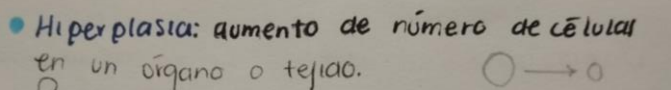 • Hiperplasia: aumento de número de células
en un órgano o tejido.